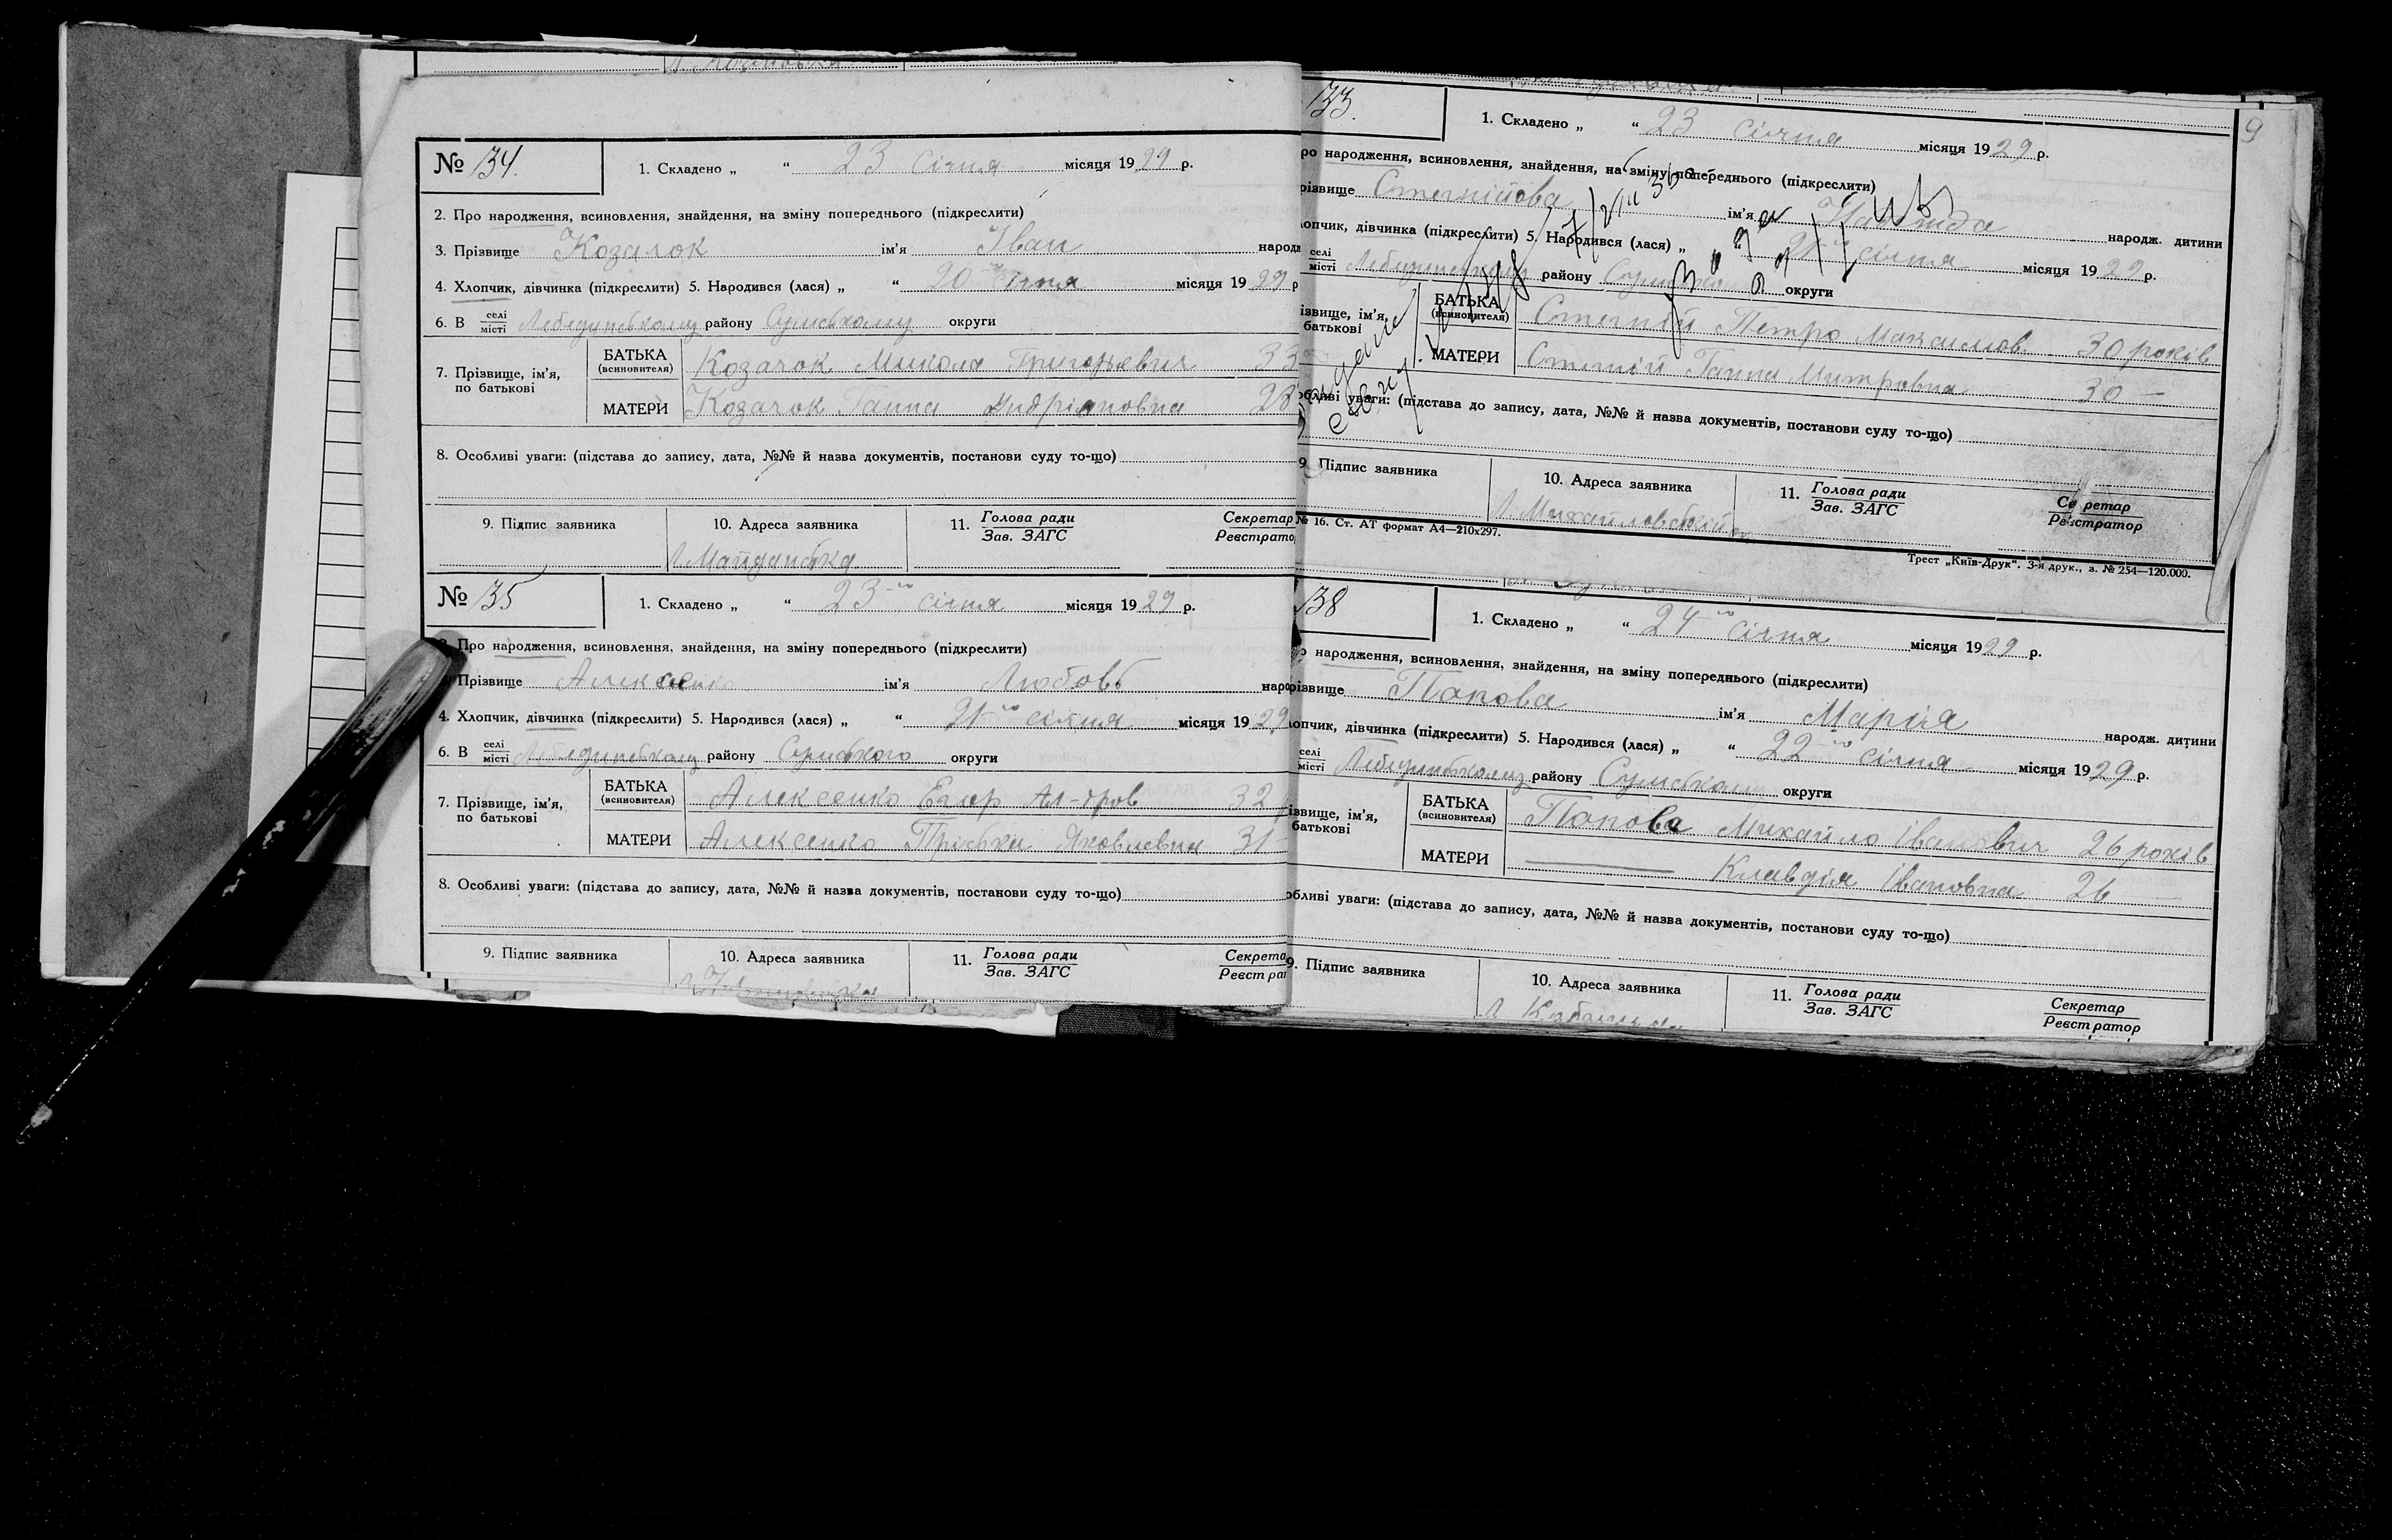 № 134.
1. Складено „ “ 23 січня місяця 1929 р.
2. Про народження, всиновлення, знайдення, на зміну попереднього (підкреслити)
3. Прізвище Козачок ім'я Іван народ
4. Хлопчик, дівчинка (підкреслити) 5. Народився (лася) „ “ 20 січня місяця 1929 р
6. В селі місті Лебединському району Сумському округи
7. Прізвище, ім'я, по батькові
БАТЬКА (всиновителя) Козачок Микола Григорьевич 33
МАТЕРИ Козачок Ганна Андріановна 28
8. Особливі уваги: (підстава до запису, дата, №№ й назва документів, постанови суду то-що)
9. Підпис заявника 10. Адреса заявника 11. Голова ради Зав. ЗАГС Секретар Реєстрато
№ 135
1. Складено „ “ 23 го січня місяця 1929 р.
Про народження, всиновлення, знайдення, на зміну попереднього (підкреслити)
Прізвище Алексенко ім'я Любовь наро
4. Хлопчик, дівчинка (підкреслити) 5. Народився (лася) „ “ 21 го січня місяця 1929
6. В селі місті Лебединському району Сумского округи
7. Прізвище, ім'я, по батькові
БАТЬКА (всиновителя) Алексенко Егор Ал-дров 32
МАТЕРИ Алексенко Яковлевна 31
8. Особливі уваги: (підстава до запису, дата, №№ й назва документів, постанови суду то-що)
9. Підпис заявника 10. Адреса заявника 11. Голова ради Зав. ЗАГС Секрета Реєстрат
9
133.
1. Складено „ “ 23 січня місяця 1929 р.
ро народження, всиновлення, знайдення, на зміну попереднього (підкреслити)
різвище ім'я народж. дитини
лопчик, дівчинка (підкреслити) 5. Народився (лася) „ “ 21 го січня місяця 1929 р.
селі місті Лебединському району округи
ізвище, ім'я, батькові
БАТЬКА (всиновителя) Петро Максимов 30 років
МАТЕРИ Ганна Митровна 30 —
обливі уваги: (підстава до запису, дата, №№ й назва документів, постанови суду то-що)
9. Підпис заявника 10. Адреса заявника 11. Голова ради Зав. ЗАГС Секретар Реєстратор
№ 16. Ст. АТ формат А4—210х297.
Трест „Київ-Друк“. 3-я друк., з. № 254—120.000.
138
1. Складено „ “ 24 го січня місяця 1929 р.
о народження, всиновлення, знайдення, на зміну попереднього (підкреслити)
різвище Попова ім'я Марія народж. дитини
лопчик, дівчинка (підкреслити) 5. Народився (лася) „ “ 22 го січня місяця 1929 р.
селі місті Лебединському району Сумському округи
ізвище, ім'я, батькові
БАТЬКА (всиновителя) Попова Михайло Іванович 26 років
МАТЕРИ — Клавдія Івановна 26 —
обливі уваги: (підстава до запису, дата, №№ й назва документів, постанови суду то-що)
9. Підпис заявника 10. Адреса заявника 11. Голова ради Зав. ЗАГС Секретар Реєстратор